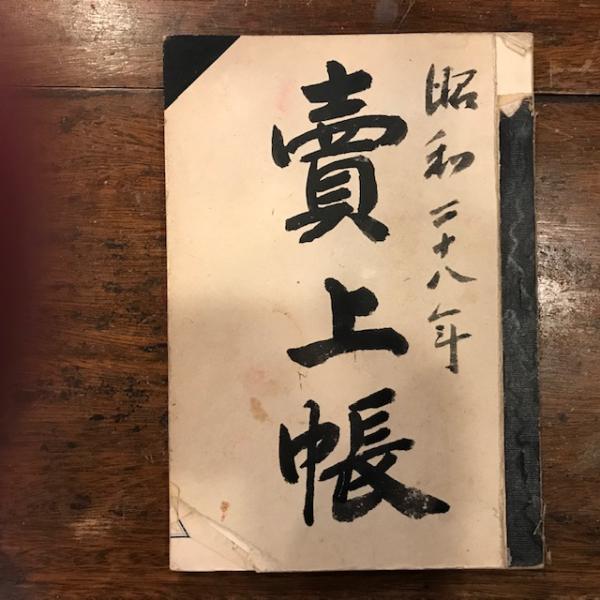 昭和二十八年
賣上帳